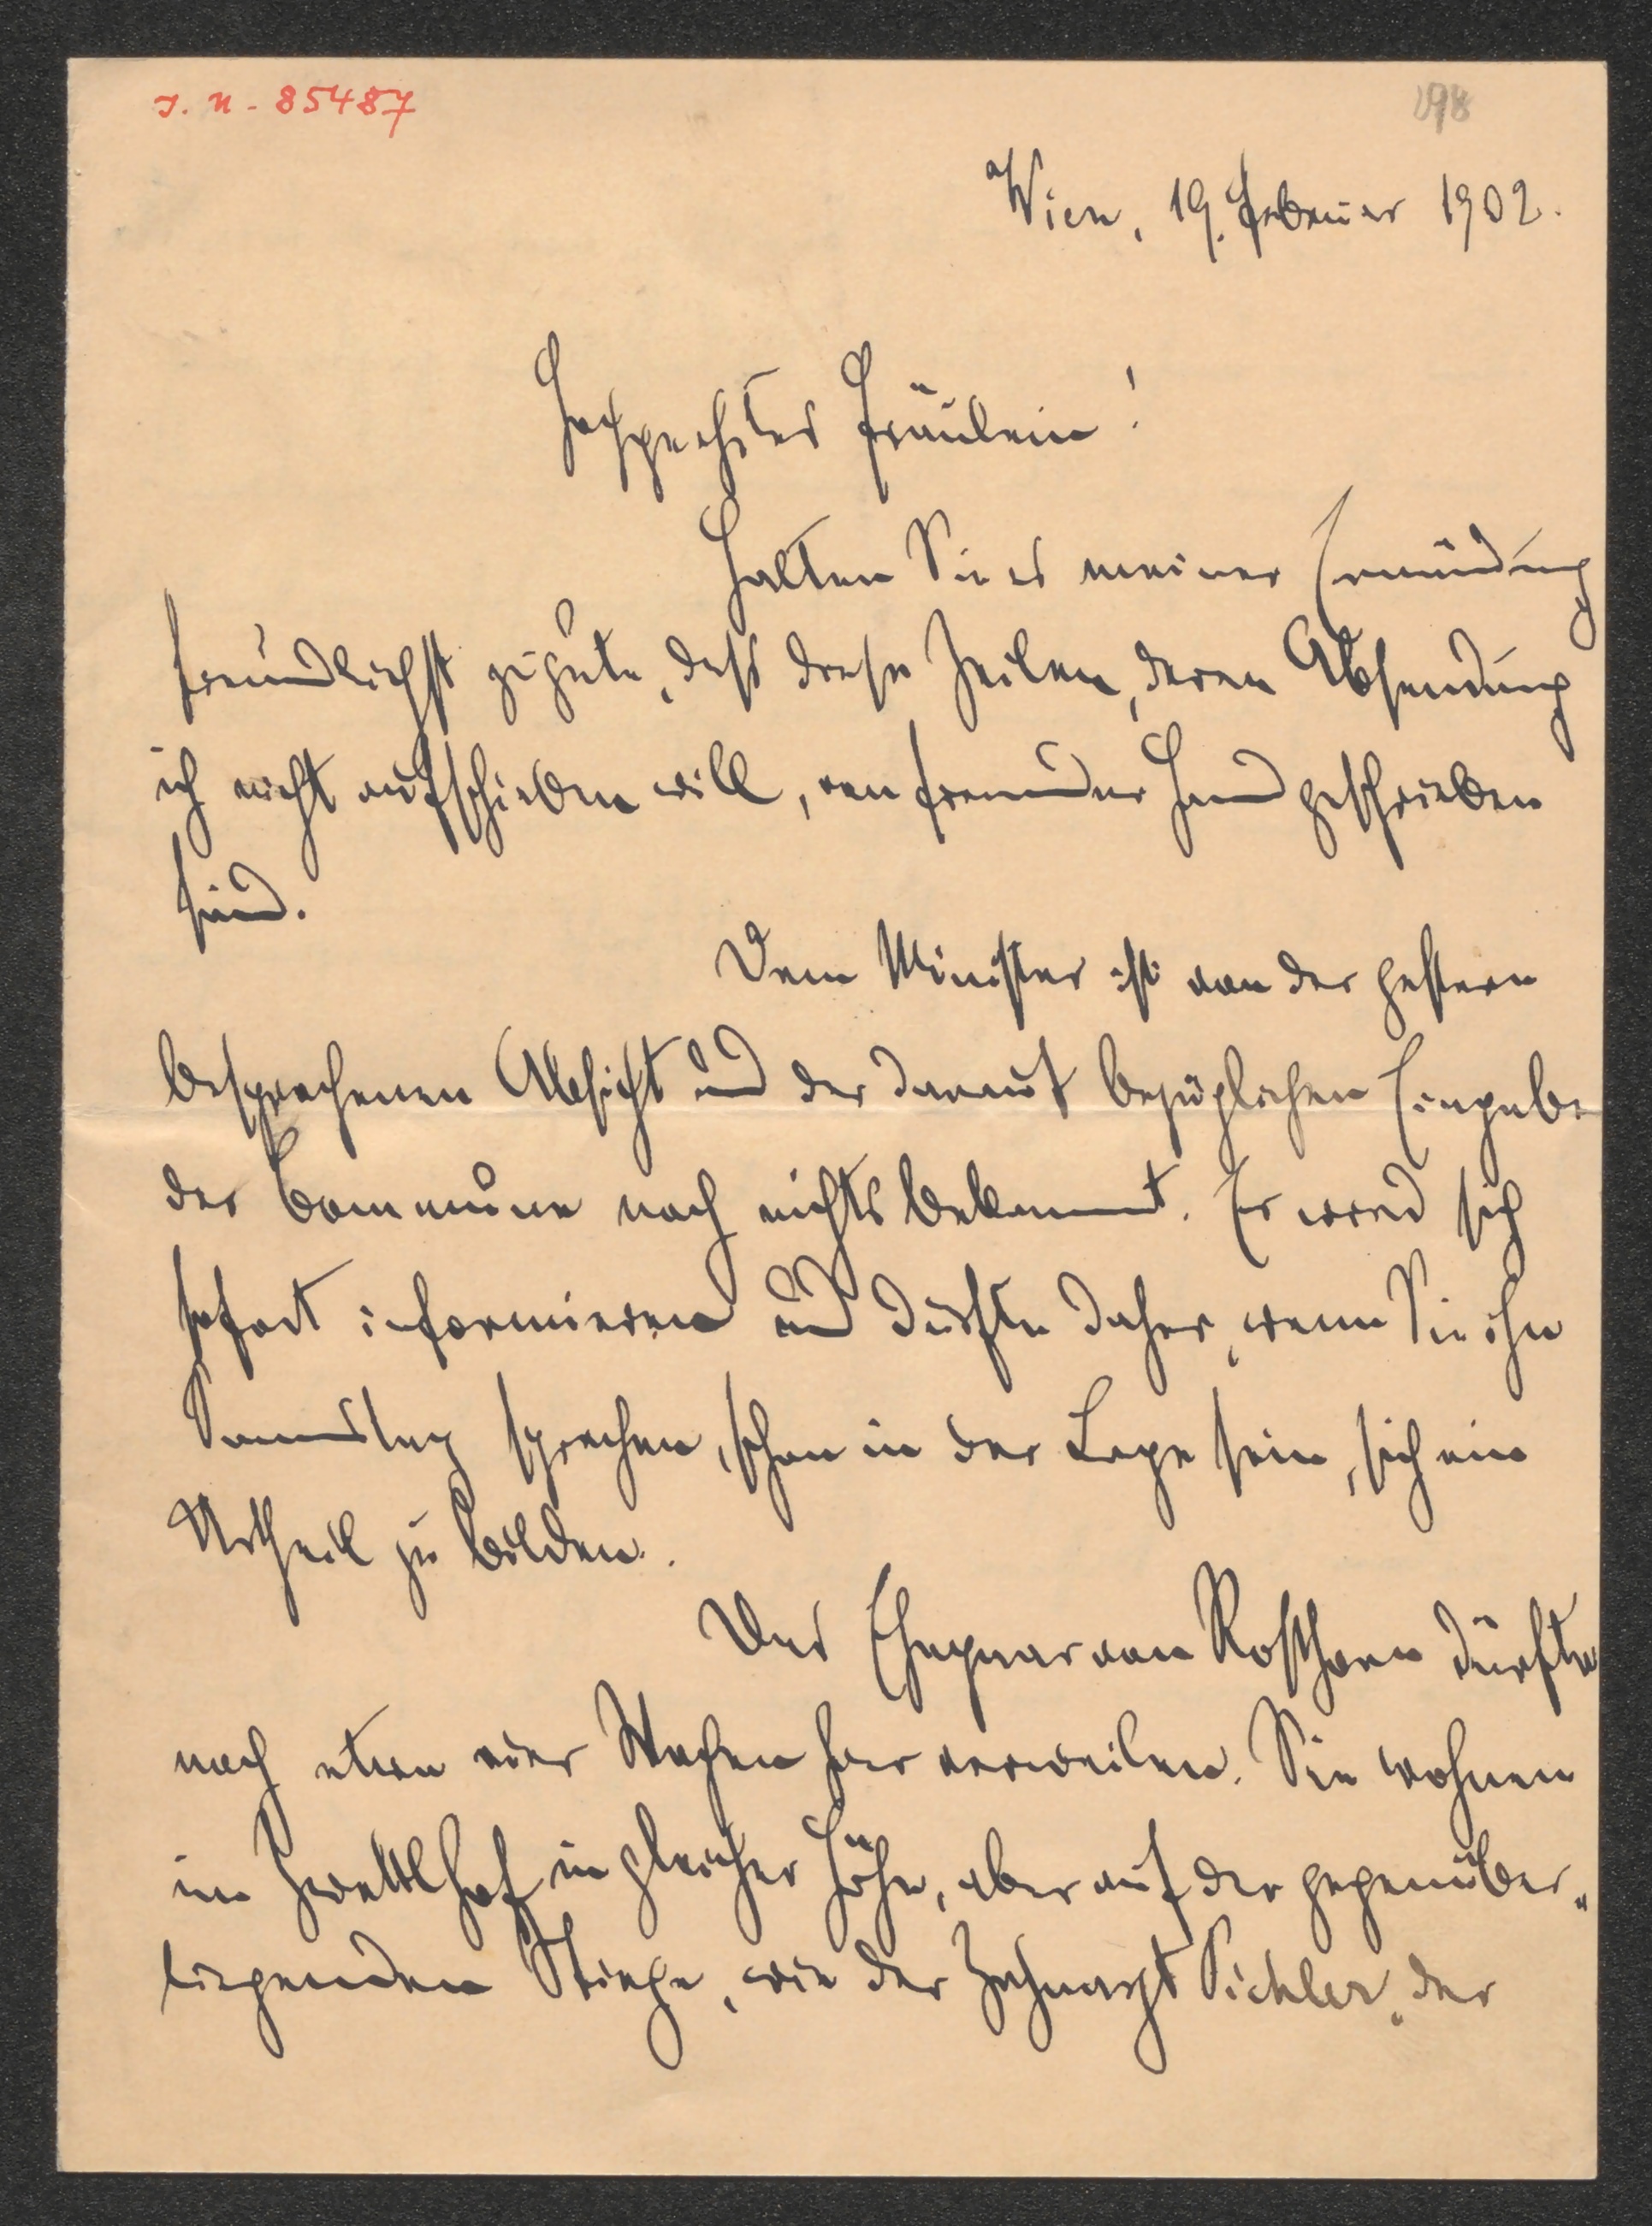 I. N. - 85487
198
Wien, 19. Februar 1902.
Hochgeehrtes Fräulein!
Halten Sie es meiner Ermüdung
freundlichst zugute, dass diese Zeilen, deren Absendung
ich nicht aufschieben will, von fremder Hand geschrieben
sind.
Dem Minister ist von der gestern
besprochenen Absicht und der darauf bezüglichen Eingabe
der Commune noch nichts bekannt. Er wird sich
sofort informieren und dürfte daher, wenn Sie ihn
Samstag sprechen, schon in der Lage sein, sich ein
Urtheil zu bilden.
Das Ehepaar von Rosthorn dürfte
noch etwa vier Wochen hier verweilen. Sie wohnen
im Zwettlhof in gleicher Höhe, aber auf der gegenüber-
liegenden Stiege, wie der Zahnarzt Pichler, der